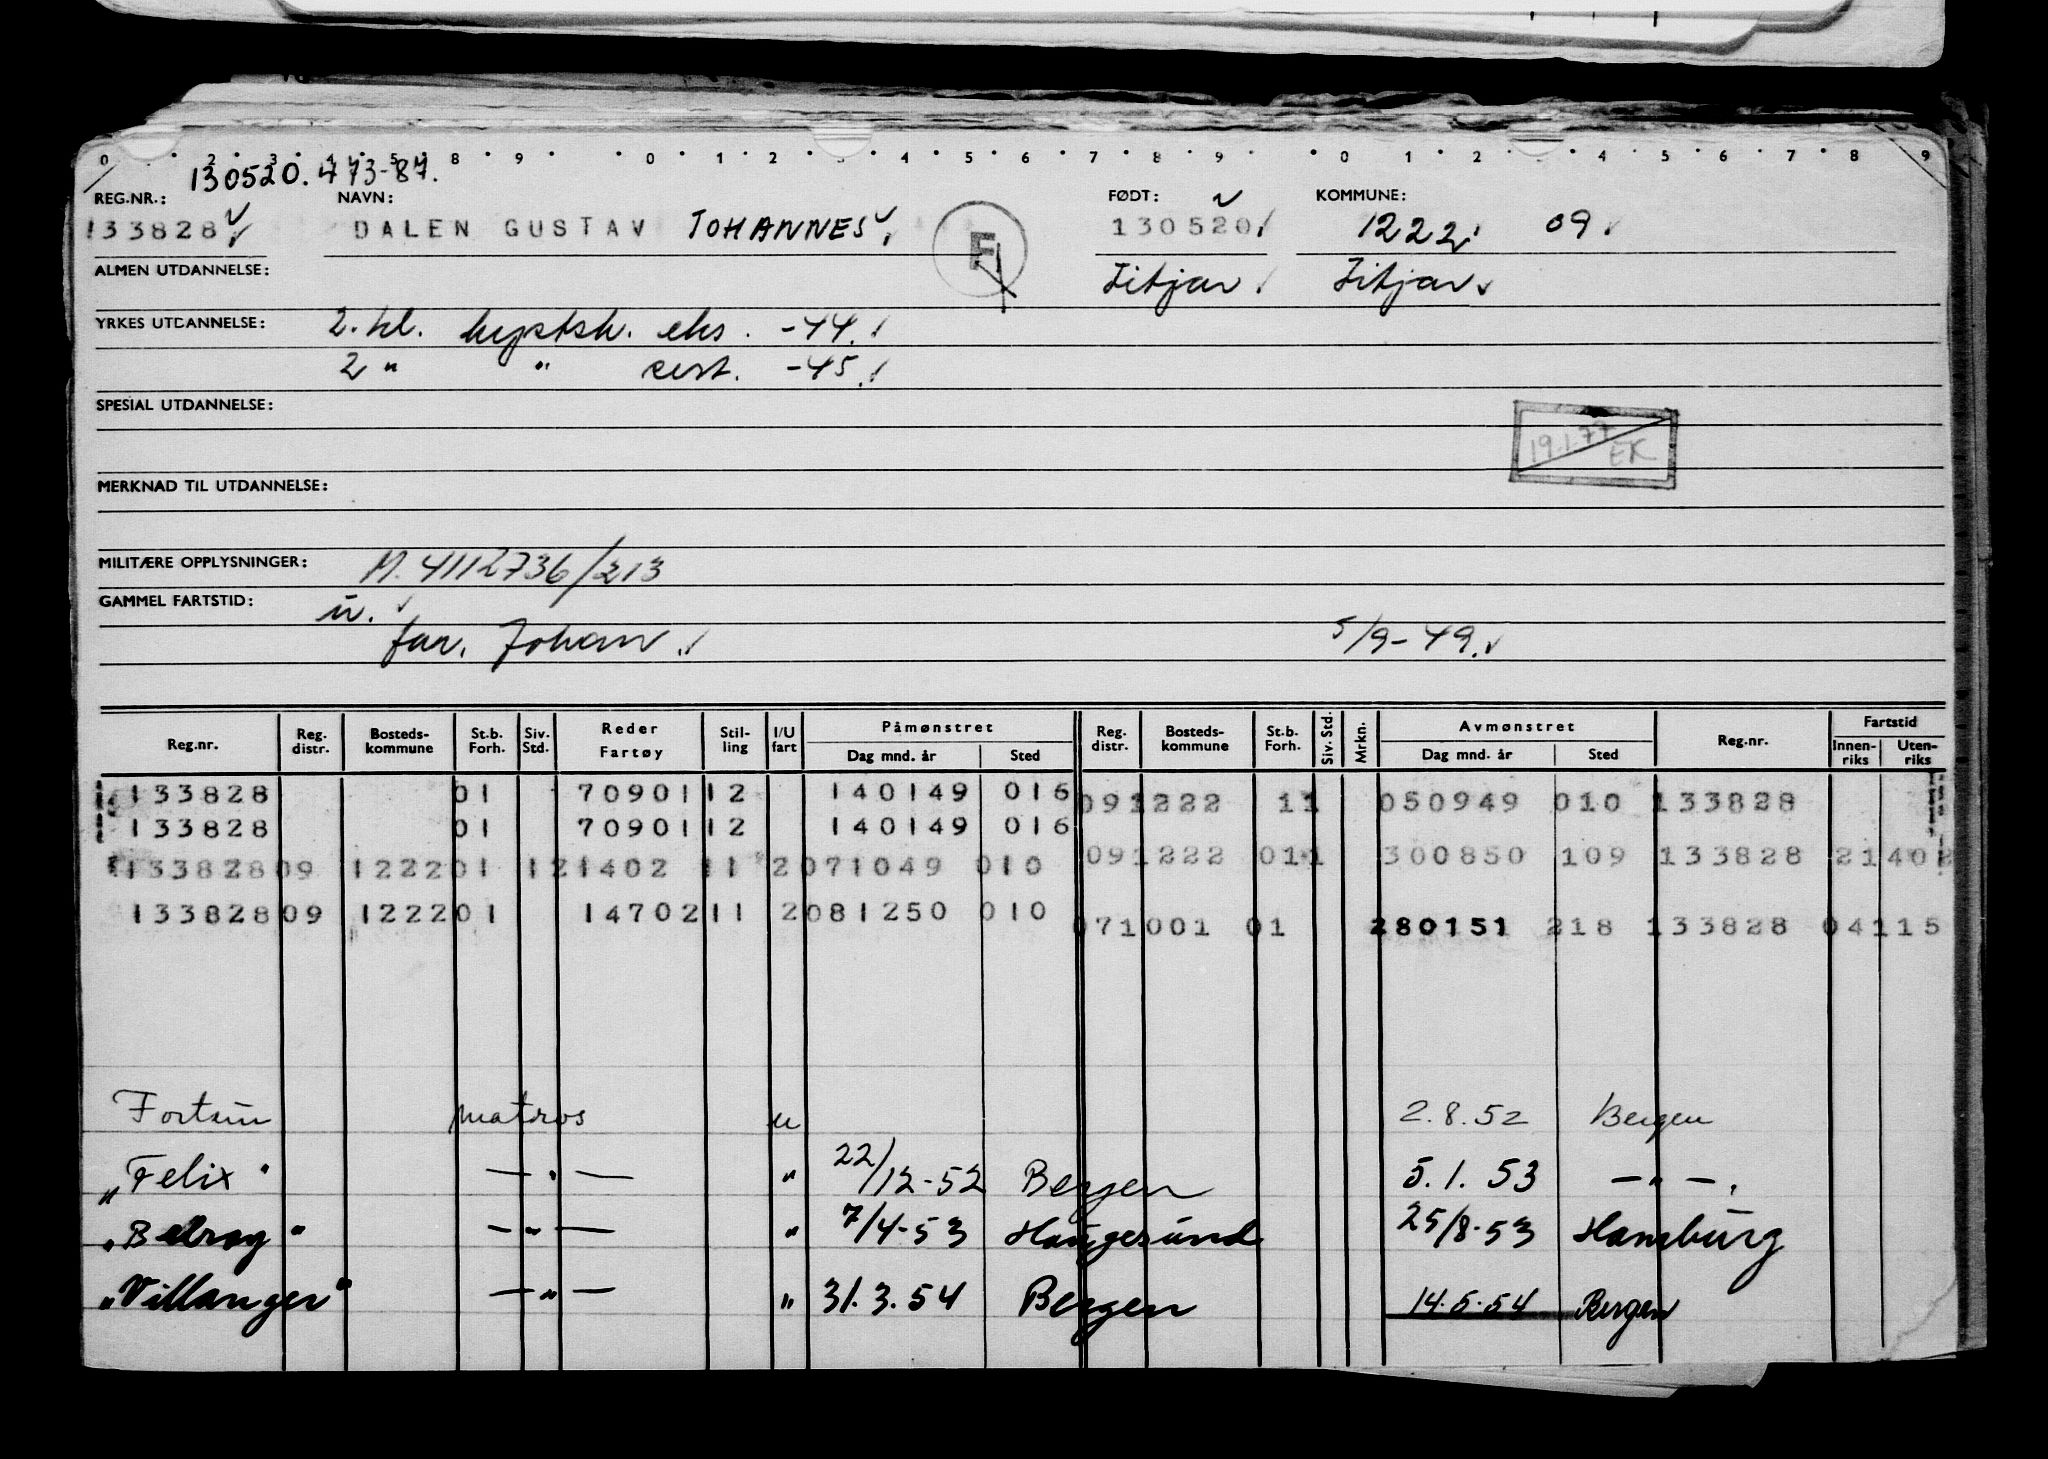 0 2 3 4 5 8 9 0 1 2 3 4 5 6 7 8 9 0 1 2 3 4 5 6 7 8 9
130520.473-87.
REG.NR.: NAVN: FØDT: KOMMUNE:
133828 DALEN GUSTAV JOHANNES F 130520 1222 09
ALMEN UTDANNELSE: Fitjar Fitjar
YRKES UTDANNELSE: 2. kl. kystsk. eks. -44.
2 " " sert. -45.
SPESIAL UTDANNELSE:
19.1.77 EK
MERKNAD TIL UTDANNELSE:
MILITÆRE OPPLYSNINGER: M. 4112736/213
GAMMEL FARTSTID: u.
far. Johan 5/9-49.
Reg.nr. Reg. distr. Bosteds-kommune St.b. Forh. Siv. Std. Reder Fartøy Stil-ling I/U fart Påmønstret Dag mnd. år Sted Reg. distr. Bosteds-kommune St.b. Forh. Siv. Std. Mrkn. Avmønstret Dag mnd. år Sted Reg.nr. Fartstid Innen-riks Uten-riks
133828 01 70901 12 140149 016 091222 11 050949 010 133828
133828 01 70901 12 140149 016
133828 09 1222 01 1 21402 11 2 071049 010 091222 011 300850 109 133828 21402
133828 09 1222 01 14702 11 2 081250 010 071001 01 280151 218 133828 04115
Fortun matros u 2.8.52 Bergen
"Felix" — " — " 22/12-52 Bergen 5.1.53 — " —
"Belray" — " — " 7/4-53 Haugesund 25/8-53 Hamburg
"Villanger" — " — " 31.3.54 Bergen 14.5.54 Bergen